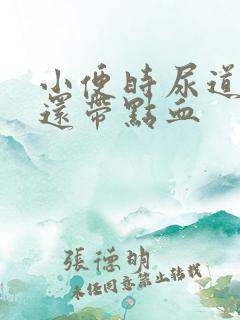 小便時尿道
還帶點血
張德明
未經同意禁止轉載